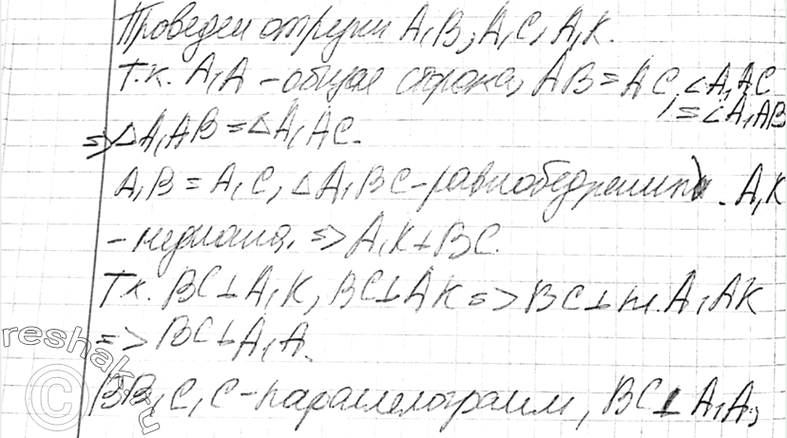 Проведем отрезки A₁B, A₁C, A₁K.
Т.к. A₁A – общая сторона, AB = AC, ∠A₁AC
= ∠A₁AB
=> △A₁AB = △A₁AC.
A₁B = A₁C, △A₁BC – равнобедренный. A₁K
– медиана, => A₁K ⊥ BC.
Т.к. BC ⊥ A₁K, BC ⊥ AK => BC ⊥ пл. A₁AK
=> BC ⊥ A₁A.
BB₁C₁C – параллелограмм, BC ⊥ A₁A,
© reshak.ru